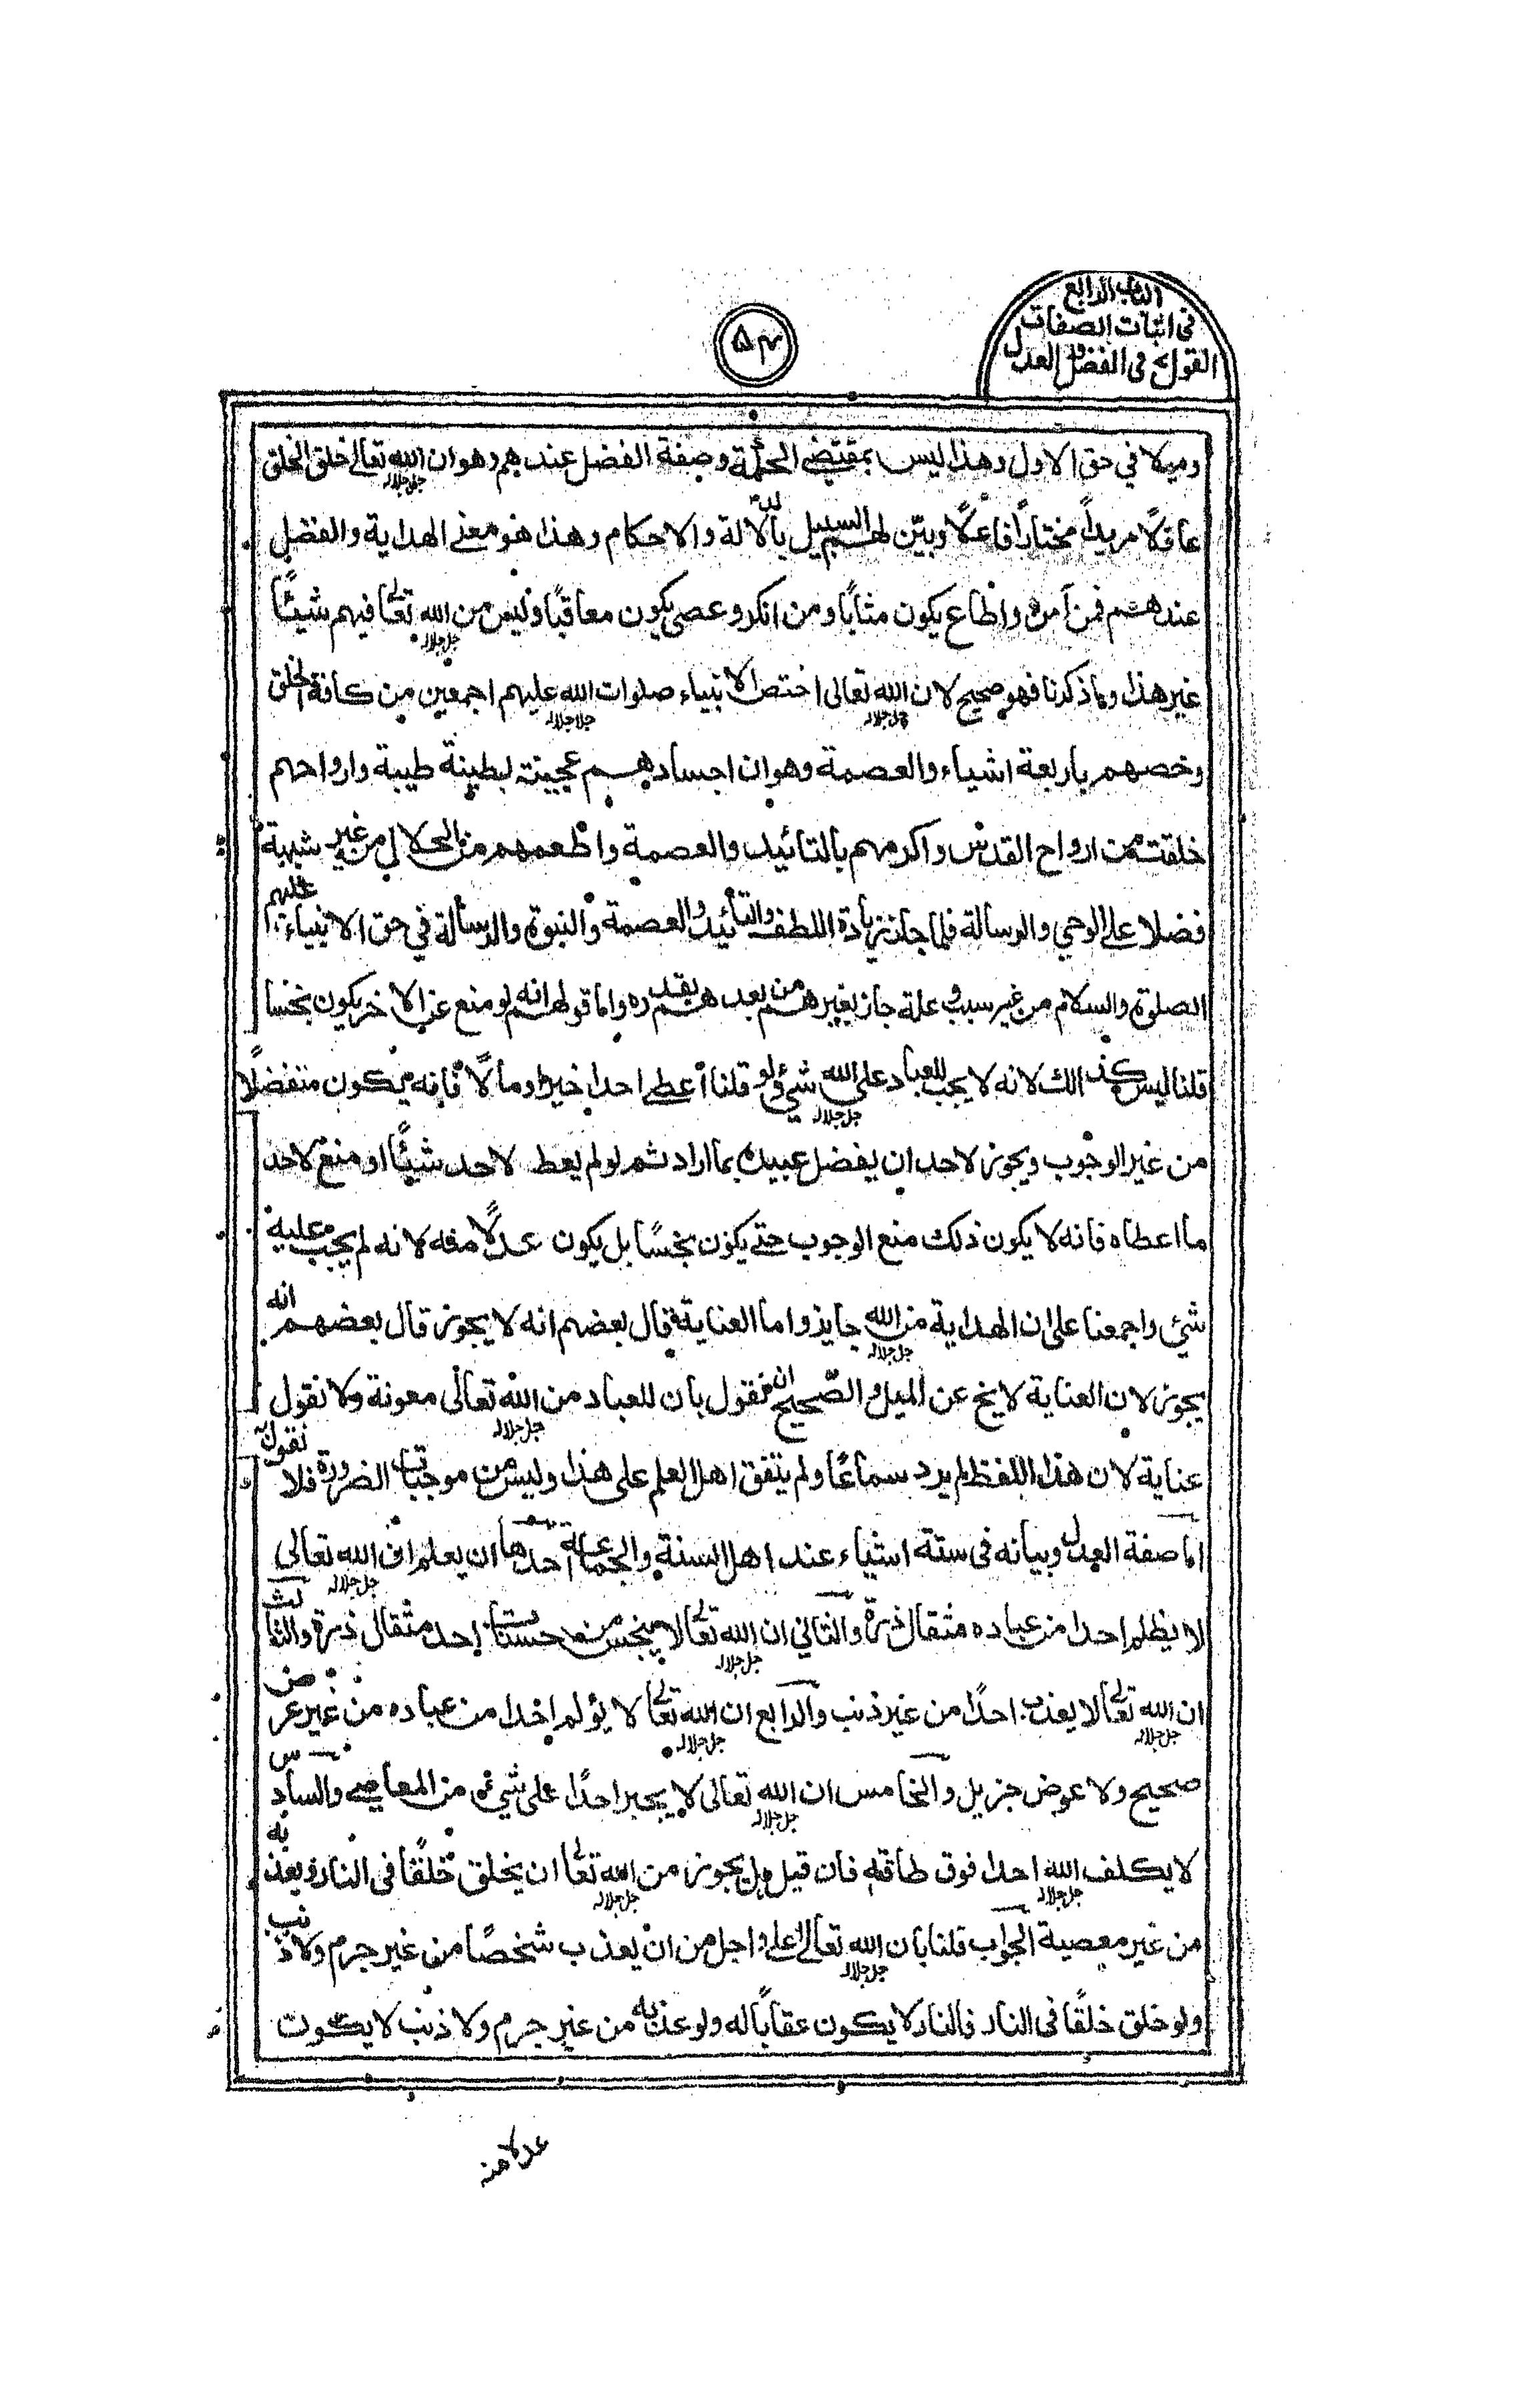 الباب الرابع
فى اثبات الصفات
القول فى الفضل والعدل
۵۴
وميلا في حق الاول وهذا ليس بمقتضى الحكمة وصفة الفضل عندهم وهو ان الله تعالى جل جلاله خلق الخلق
عاقلًا مريداً مختاراً فاعلًا وبيّن لهم السبيل بالادلة والاحكام وهذا هو معنى الهداية والفضل
عندهم فمن آمن واطاع يكون مثابًا ومن انكر وعصى يكون معاقبًا وليس من الله تعالى جل جلاله فيهم شيئًا
غير هذا وما ذكرنا فهو صحيح لان الله تعالى جل جلاله اختص الانبياء صلوات الله جل جلاله عليهم اجمعين من كافة الخلق
وخصهم باربعة اشياء والعصمة وهو ان اجسادهم عجينة بطينة طيبة وارواحهم
خلقت من ارواح القدس واكرمهم بالتائيد والعصمة واطعمهم من الحلال من غير شبهة
فضلا على الوحي والرسالة فلما جاز زيادة اللطف والتائيد والعصمة والنبوة والرسالة في حق الانبياء عليهم
الصلوة والسلام من غير سبب و علة جاز بغيرهم من بعدهم بقدره واما قولهم انه لو منع عن الاخر يكون بخسا
قلنا ليس كذالك لانه لا يجب للعباد على الله جل جلاله شيء ولو قلنا أعطى احدا خيرا ومالًا فانه يكون متفضلًا
من غير الوجوب ويجوز لاحد ان يفضل عبيده بما اراد ثم لو لم يعط لاحد شيئًا او منع لاحد
ما اعطاه فانه لا يكون ذلك منع الوجوب حتى يكون بخسًا بل يكون عدلًا منه لانه لم يجب عليه
شيء واجمعنا على ان الهداية من الله جل جلاله جايز واما العناية قال بعضهم انه لا يجوز قال بعضهم انه
يجوز لان العناية لا يخ عن الميل و الصّحيح ان نقول بان للعباد من الله تعالى جل جلاله معونة ولا نقول
عناية لان هذا اللفظ لم يرد سماعًا ولم يتفق اهل العلم على هذا وليس من موجبات الضرورة فلا نقول
اما صفة العدل وبيانه فى ستة اشياء عند اهل السنة والجماعة احدها ان يعلم ان الله تعالى جل جلاله
لا يظلم احدا من عباده مثقال ذرة والثاني ان الله تعالى جل جلاله لا يبخس من حسنات احد مثقال ذرة والثالث
ان الله تعالى جل جلاله لا يعذب احدًا من غير ذنب والرابع ان الله تعالى جل جلاله لا يؤلم احدا من عباده من غير عرض
صحيح ولا عوض جزيل والخامس ان الله تعالى جل جلاله لا يجبر احدًا على شيء من المعاصى والسادس
لا يكلف الله جل جلاله احدا فوق طاقته فان قيل هل يجوز من الله تعالى جل جلاله ان يخلق خلقًا فى النار ويعذبه
من غير معصية الجواب قلنا بان الله تعالى جل جلاله اعلى و اجل من ان يعذب شخصًا من غير جرم ولا ذنب
ولو خلق خلقًا فى النار فالنار لا يكون عقابًا له ولو عذبه من غير جرم ولا ذنب لا يكون
عدلا منه